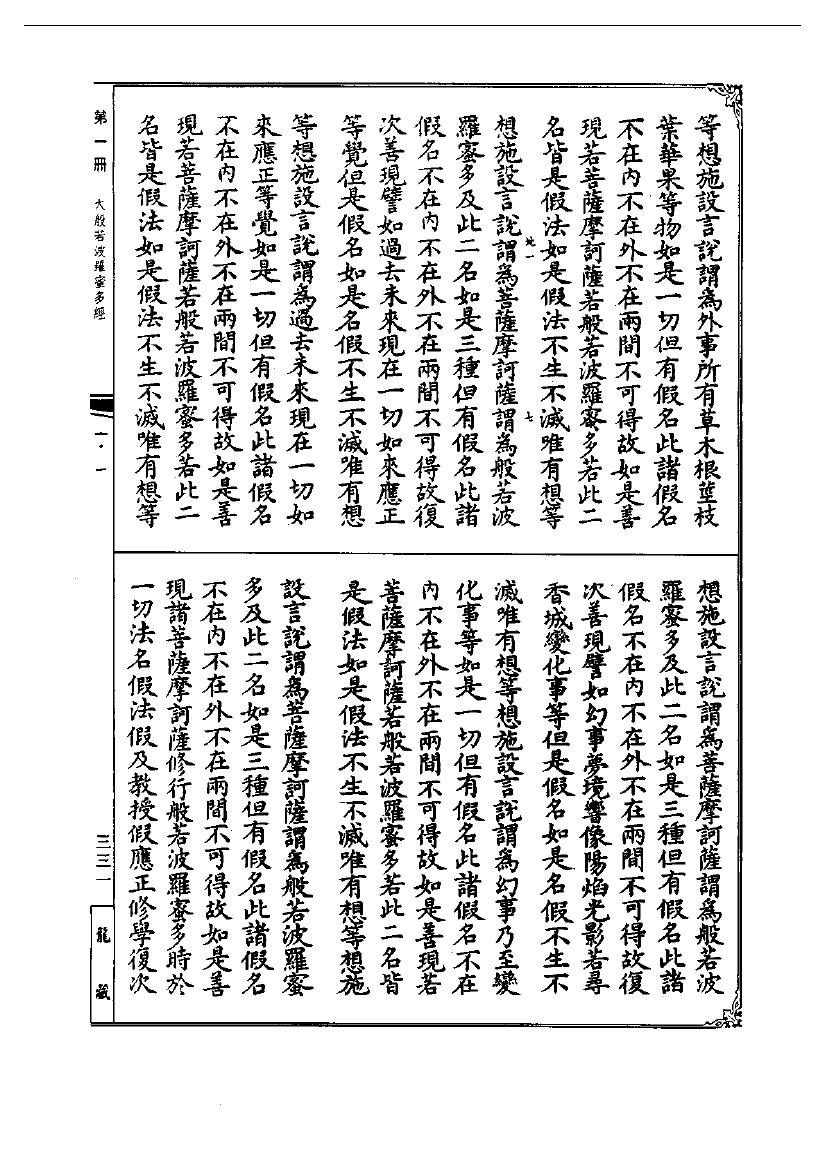 等想施設言說謂為外事所有草木根莖枝
葉華果等物如是一切但有假名此諸假名
不在內不在外不在兩間不可得故如是善
現若菩薩摩訶薩若般若波羅蜜多若此二
名皆是假法如是假法不生不滅唯有想等
想施設言說謂為菩薩摩訶薩謂為般若波
羅蜜多及此二名如是三種但有假名此諸
假名不在內不在外不在兩間不可得故復
次善現譬如過去未來現在一切如來應正
等覺但是假名如是名假不生不滅唯有想
等想施設言說謂為過去未來現在一切如
來應正等覺如是一切但有假名此諸假名
不在內不在外不在兩間不可得故如是善
現若菩薩摩訶薩若般若波羅蜜多若此二
名皆是假法如是假法不生不滅唯有想等
想施設言說謂為菩薩摩訶薩謂為般若波
羅蜜多及此二名如是三種但有假名此諸
假名不在內不在外不在兩間不可得故復
次善現譬如幻事夢境響像陽焰光影若尋
香城變化事等但是假名如是名假不生不
滅唯有想等想施設言說謂為幻事乃至變
化事等如是一切但有假名此諸假名不在
內不在外不在兩間不可得故如是善現若
菩薩摩訶薩若般若波羅蜜多若此二名皆
是假法如是假法不生不滅唯有想等想施
設言說謂為菩薩摩訶薩謂為般若波羅蜜
多及此二名如是三種但有假名此諸假名
不在內不在外不在兩間不可得故如是善
現諸菩薩摩訶薩修行般若波羅蜜多時於
一切法名假法假及教授假應正修學復次
地一
七
第一冊 大般若波羅蜜多經
一·一
三三一
龍藏